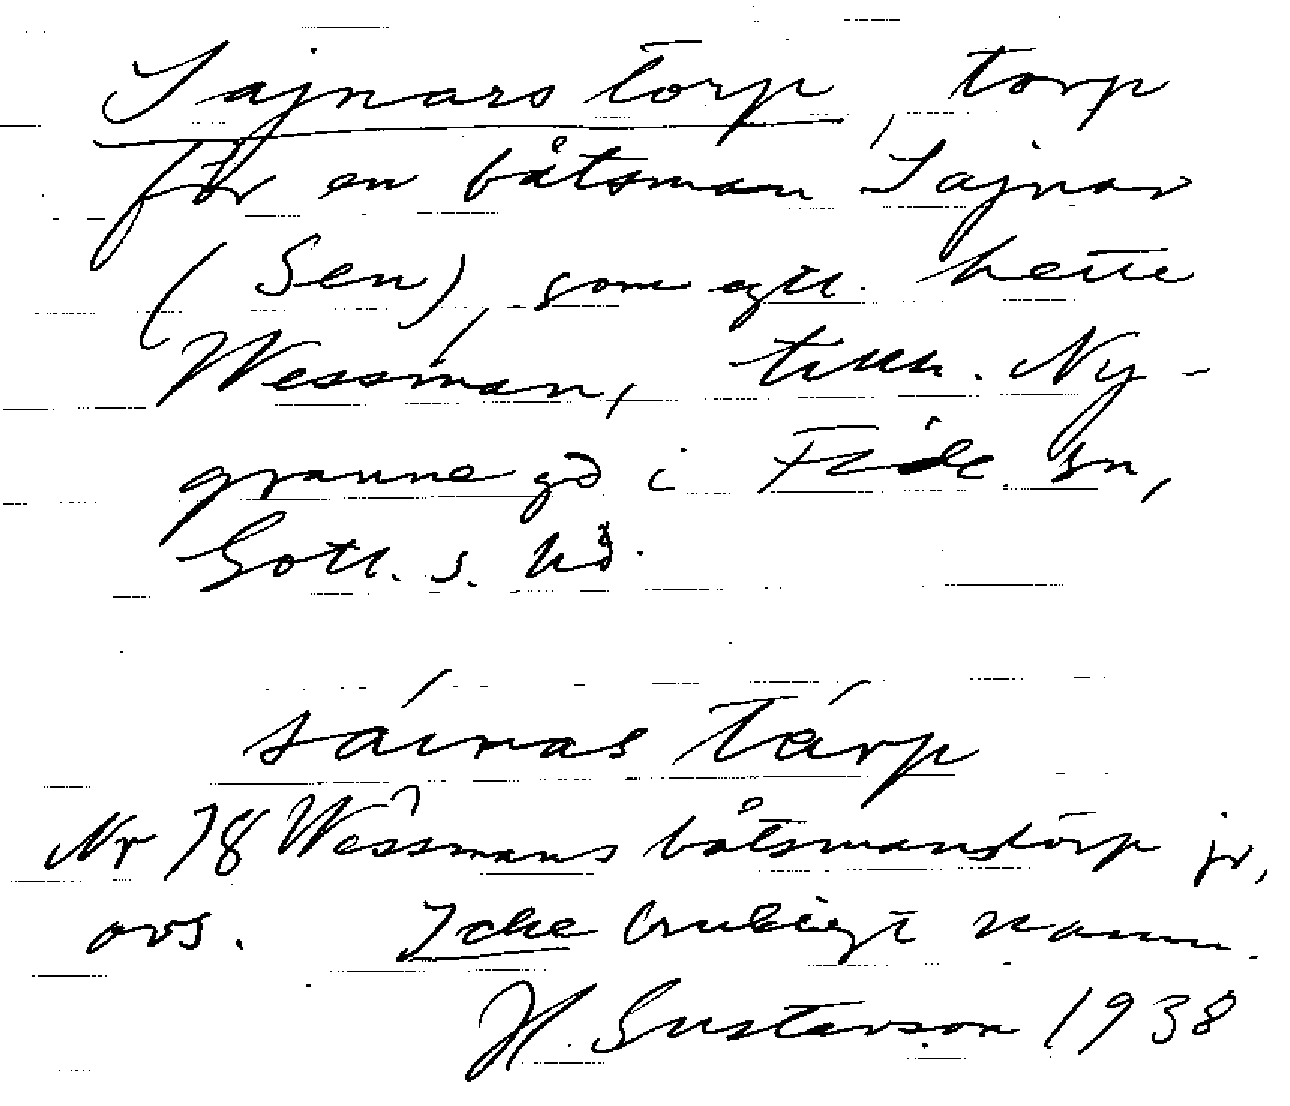 Sajnars torp, torp
för en båtsman Sajnar
(Sen), som egtl. hette
Wessman, tillh. Ny-
granne gd i Fide sn,
Gotl. s. hd.
sáinas tárp
Nr 78 Wessmans båtsmanstorp jr,
avs. Icke brukligt namn.
H. Gustavson 1938